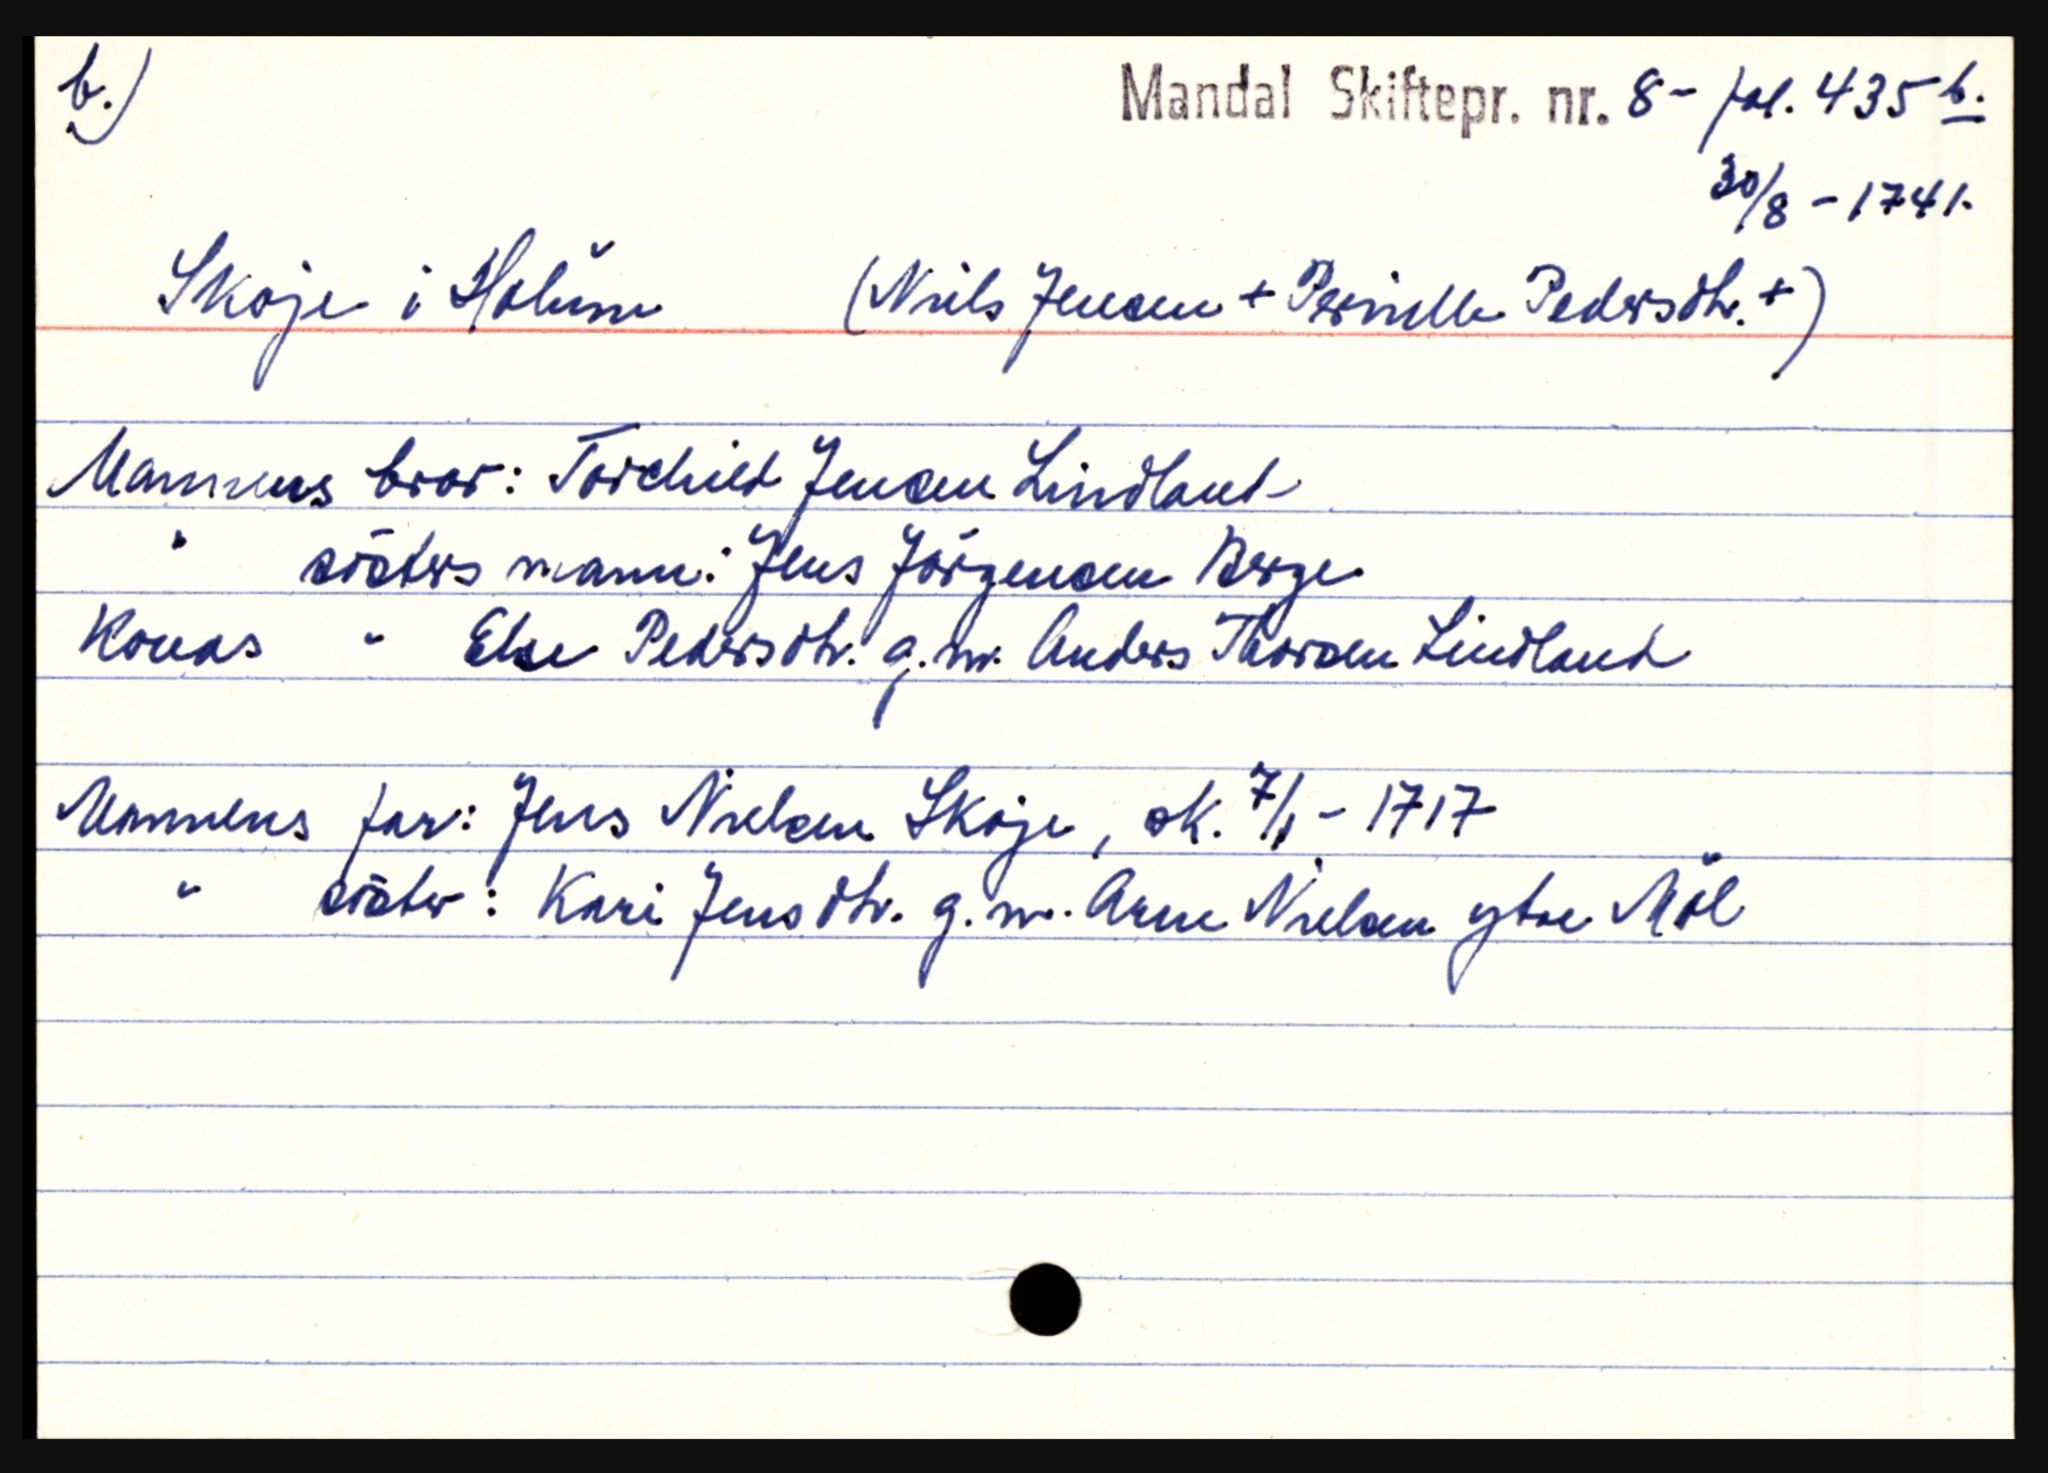 b.)
Mandal Skiftepr. nr. 8 - fol. 435 b.
30/8 - 1741.
Skoje i Holum (Niels Jensen + Pernille Pedersdtr. +)
Mannens bror: Torchild Jensen Lindland
" sösters mann: Jens Jörgensen Berge
Konas " Else Pedersdtr. g.m. Anders Thorsen Lindland
Mannens far: Jens Nielsen Skoje, sk. 7/1 - 1717
" söster: Kari Jensdtr. g.m. Arne Nielsen ytre Möl